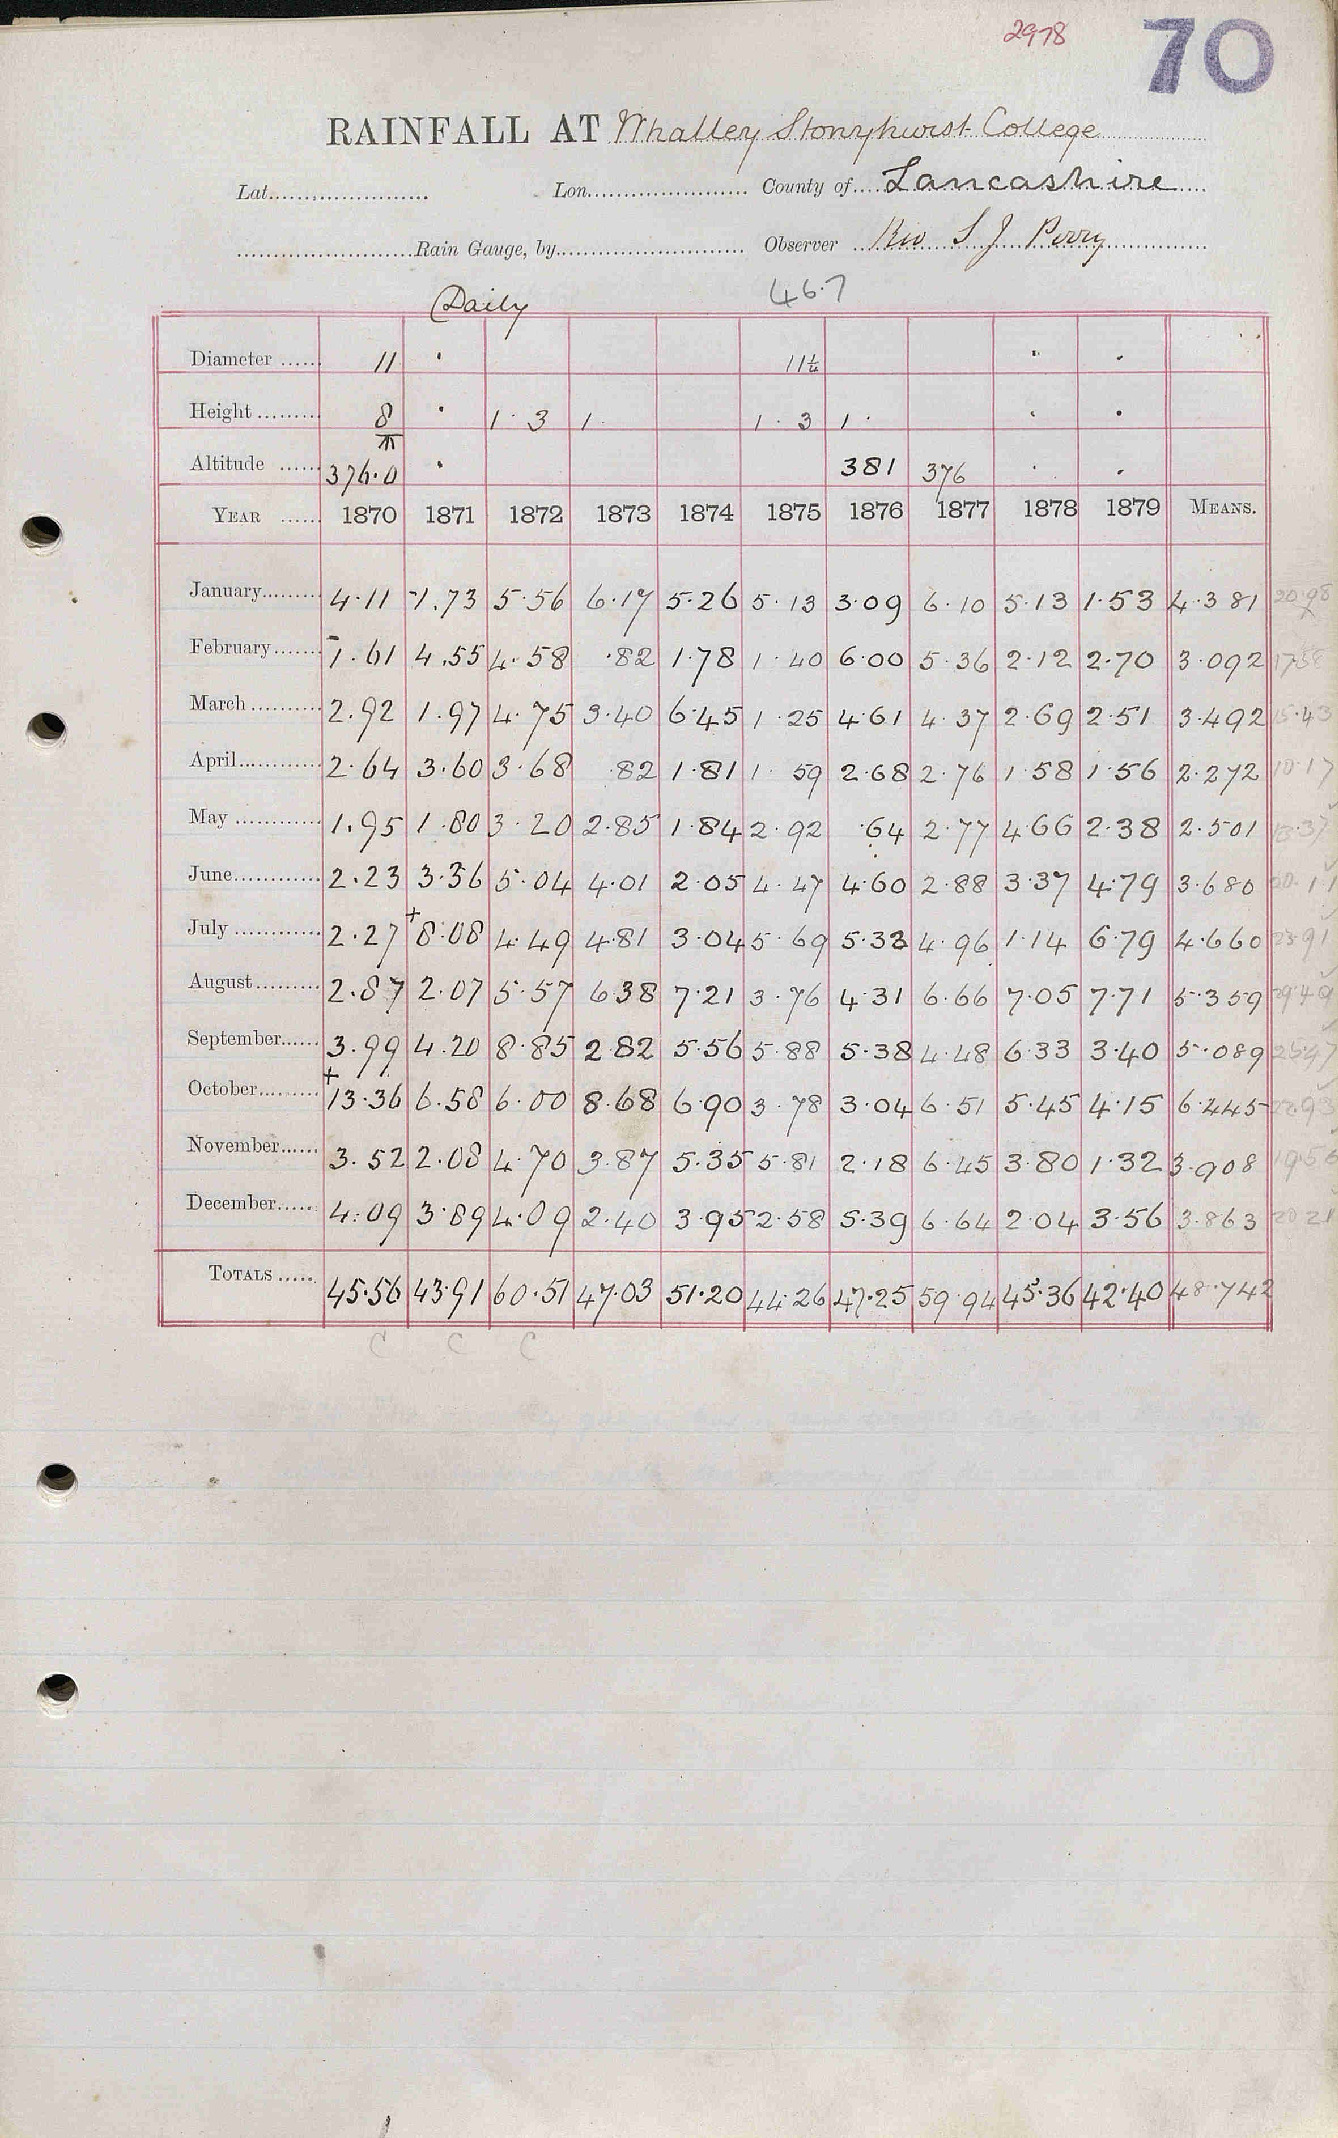 2978
70
RAINFALL AT Whalley Stonyhurst College
Lat. Lon. County of Lancashire
Rain Gauge, by Observer Rev S J Perry
Daily 46.7
Diameter 11 " 11¼ " "
Height 8 " 1 . 3 1 . 1 . 3 1 . " "
Altitude 376.0 " 381 376 " "
YEAR 1870 1871 1872 1873 1874 1875 1876 1877 1878 1879 MEANS.
January 4.11 1.73 5.56 6.17 5.26 5.13 3.09 6.10 5.13 1.53 4.381 20.98
February 1.61 4.55 4.58 .82 1.78 1.40 6.00 5.36 2.12 2.70 3.092 17.58
March 2.92 1.97 4.75 3.40 6.45 1.25 4.61 4.37 2.69 2.51 3.492 15.43
April 2.64 3.60 3.68 .82 1.81 1.59 2.68 2.76 1.58 1.56 2.272 10.17
May 1.95 1.80 3.20 2.85 1.84 2.92 .64 2.77 4.66 2.38 2.501 13.37
June 2.23 3.36 5.04 4.01 2.05 4.47 4.60 2.88 3.37 4.79 3.680 20.11
July 2.27 +8.08 4.49 4.81 3.04 5.69 5.33 4.96 1.14 6.79 4.660 23.91
August 2.87 2.07 5.57 6.38 7.21 3.76 4.31 6.66 7.05 7.71 5.359 29.49
September 3.99 4.20 8.85 2.82 5.56 5.88 5.38 4.48 6.33 3.40 5.089 25.47
October +13.36 6.58 6.00 8.68 6.90 3.78 3.04 6.51 5.45 4.15 6.445 22.93
November 3.52 2.08 4.70 3.87 5.35 5.81 2.18 6.45 3.80 1.32 3.908 19.56
December 4.09 3.89 4.09 2.40 3.95 2.58 5.39 6.64 2.04 3.56 3.863 20.21
TOTALS 45.56 43.91 60.51 47.03 51.20 44.26 47.25 59.94 45.36 42.40 48.742
C C C